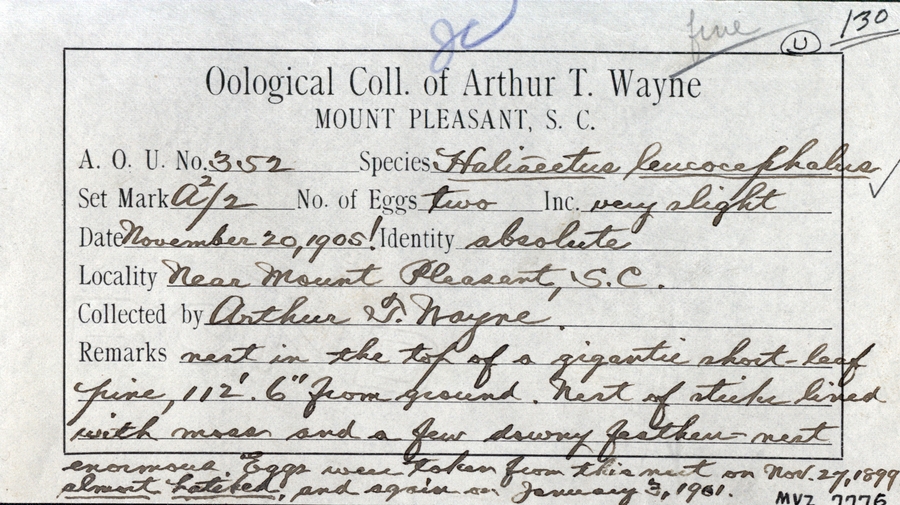 fine
U
130
Oological Coll. of Arthur T. Wayne
MOUNT PLEASANT, S. C.
A. O. U. No. 352 Species Haliaeetus leucocephalus
Set Mark a2/2 No. of Eggs two Inc. very slight
Date November 20, 1905! Identity absolute
Locality Near Mount Pleasant, S.C.
Collected by Arthur T. Wayne.
Remarks nest in the top of a gigantic short-leaf
pine, 112'. 6" from ground. Nest of sticks lined
with moss and a few downy feathers—nest
enormous. Eggs were taken from this nest on Nov. 27, 1899
almost hatched, and again on January 3, 1901.
MVZ 7775